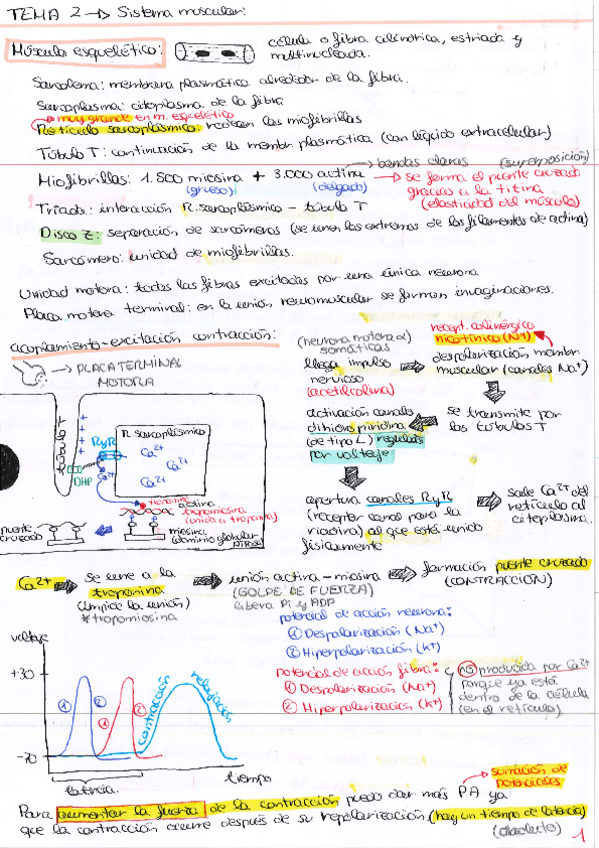 TEMA 2 → Sistema muscular:
Músculo esquelético:
célula o fibra cilíndrica, estriada y
multinucleada.
Sarcolema: membrana plasmática alrededor de la fibra.
Sarcoplasma: citoplasma de la fibra
→ muy grande en m. esquelético
Retículo sarcoplásmico: rodean las miofibrillas
Túbulo T: continuación de la membr plasmática (con líquido extracelular)
→ bandas claras (superposición)
Miofibrillas: 1.500 miosina + 3.000 actina → se forma el puente cruzado
(grueso) (delgado) gracias a la titina
(elasticidad del músculo)
Triada: interacción R. sarcoplásmico - túbulo T
Disco Z: separación de sarcómeros (se unen los extremos de los filamentos de actina)
Sarcómero: unidad de miofibrillas.
Unidad motora: todas las fibras excitadas por una única neurona
Placa motora terminal: en la unión neuromuscular se forman invaginaciones.
acoplamiento-excitación contracción:
→ PLACA TERMINAL
MOTORA
túbulo T
R. sarcoplásmico
RyR
Ca²⁺
Ca²⁺
Ca²⁺
Ca²⁺
DHP
troponina
actina
tropomiosina
(unida a troponina)
miosina
(dominio globular
puente
cruzado
(neurona motora α)
somáticas
llega impulso
nervioso
(acetilcolina)
recept. colinérgico
nicotínico (N⁺)
despolarización membr
muscular (canales Na⁺)
se transmite por
los túbulos T
activación canals
dihidropiridina
(de tipo L) regulados
por voltaje
apertura canales RyR
(receptor canal para la
riadina) al que está unido
físicamente
sale Ca²⁺ del
retículo al
citoplasma.
Ca²⁺
se une a la
troponina
(impide la unión)
*tropomiosina
unión actina - miosina
(GOLPE DE FUERZA)
libera Pi y ADP
formación puente cruzado
(CONTRACCIÓN)
potencial de acción neurona:
① Despolarización (Na⁺)
② Hiperpolarización (K⁺)
potencial de acción fibra:
① Despolarización (Na⁺)
② Hiperpolarización (K⁺)
no producida por Ca²⁺
porque ya está
dentro de la célula
(en el retículo)
voltaje
+30
-70
① ② ① ②
contracción
relajación
latencia
tiempo
sumación de
potenciales
Para aumentar la fuerza de la contracción puedo dar más PA ya
que la contracción ocurre después de su repolarización (hay un tiempo de latencia)
(absoluto)
1